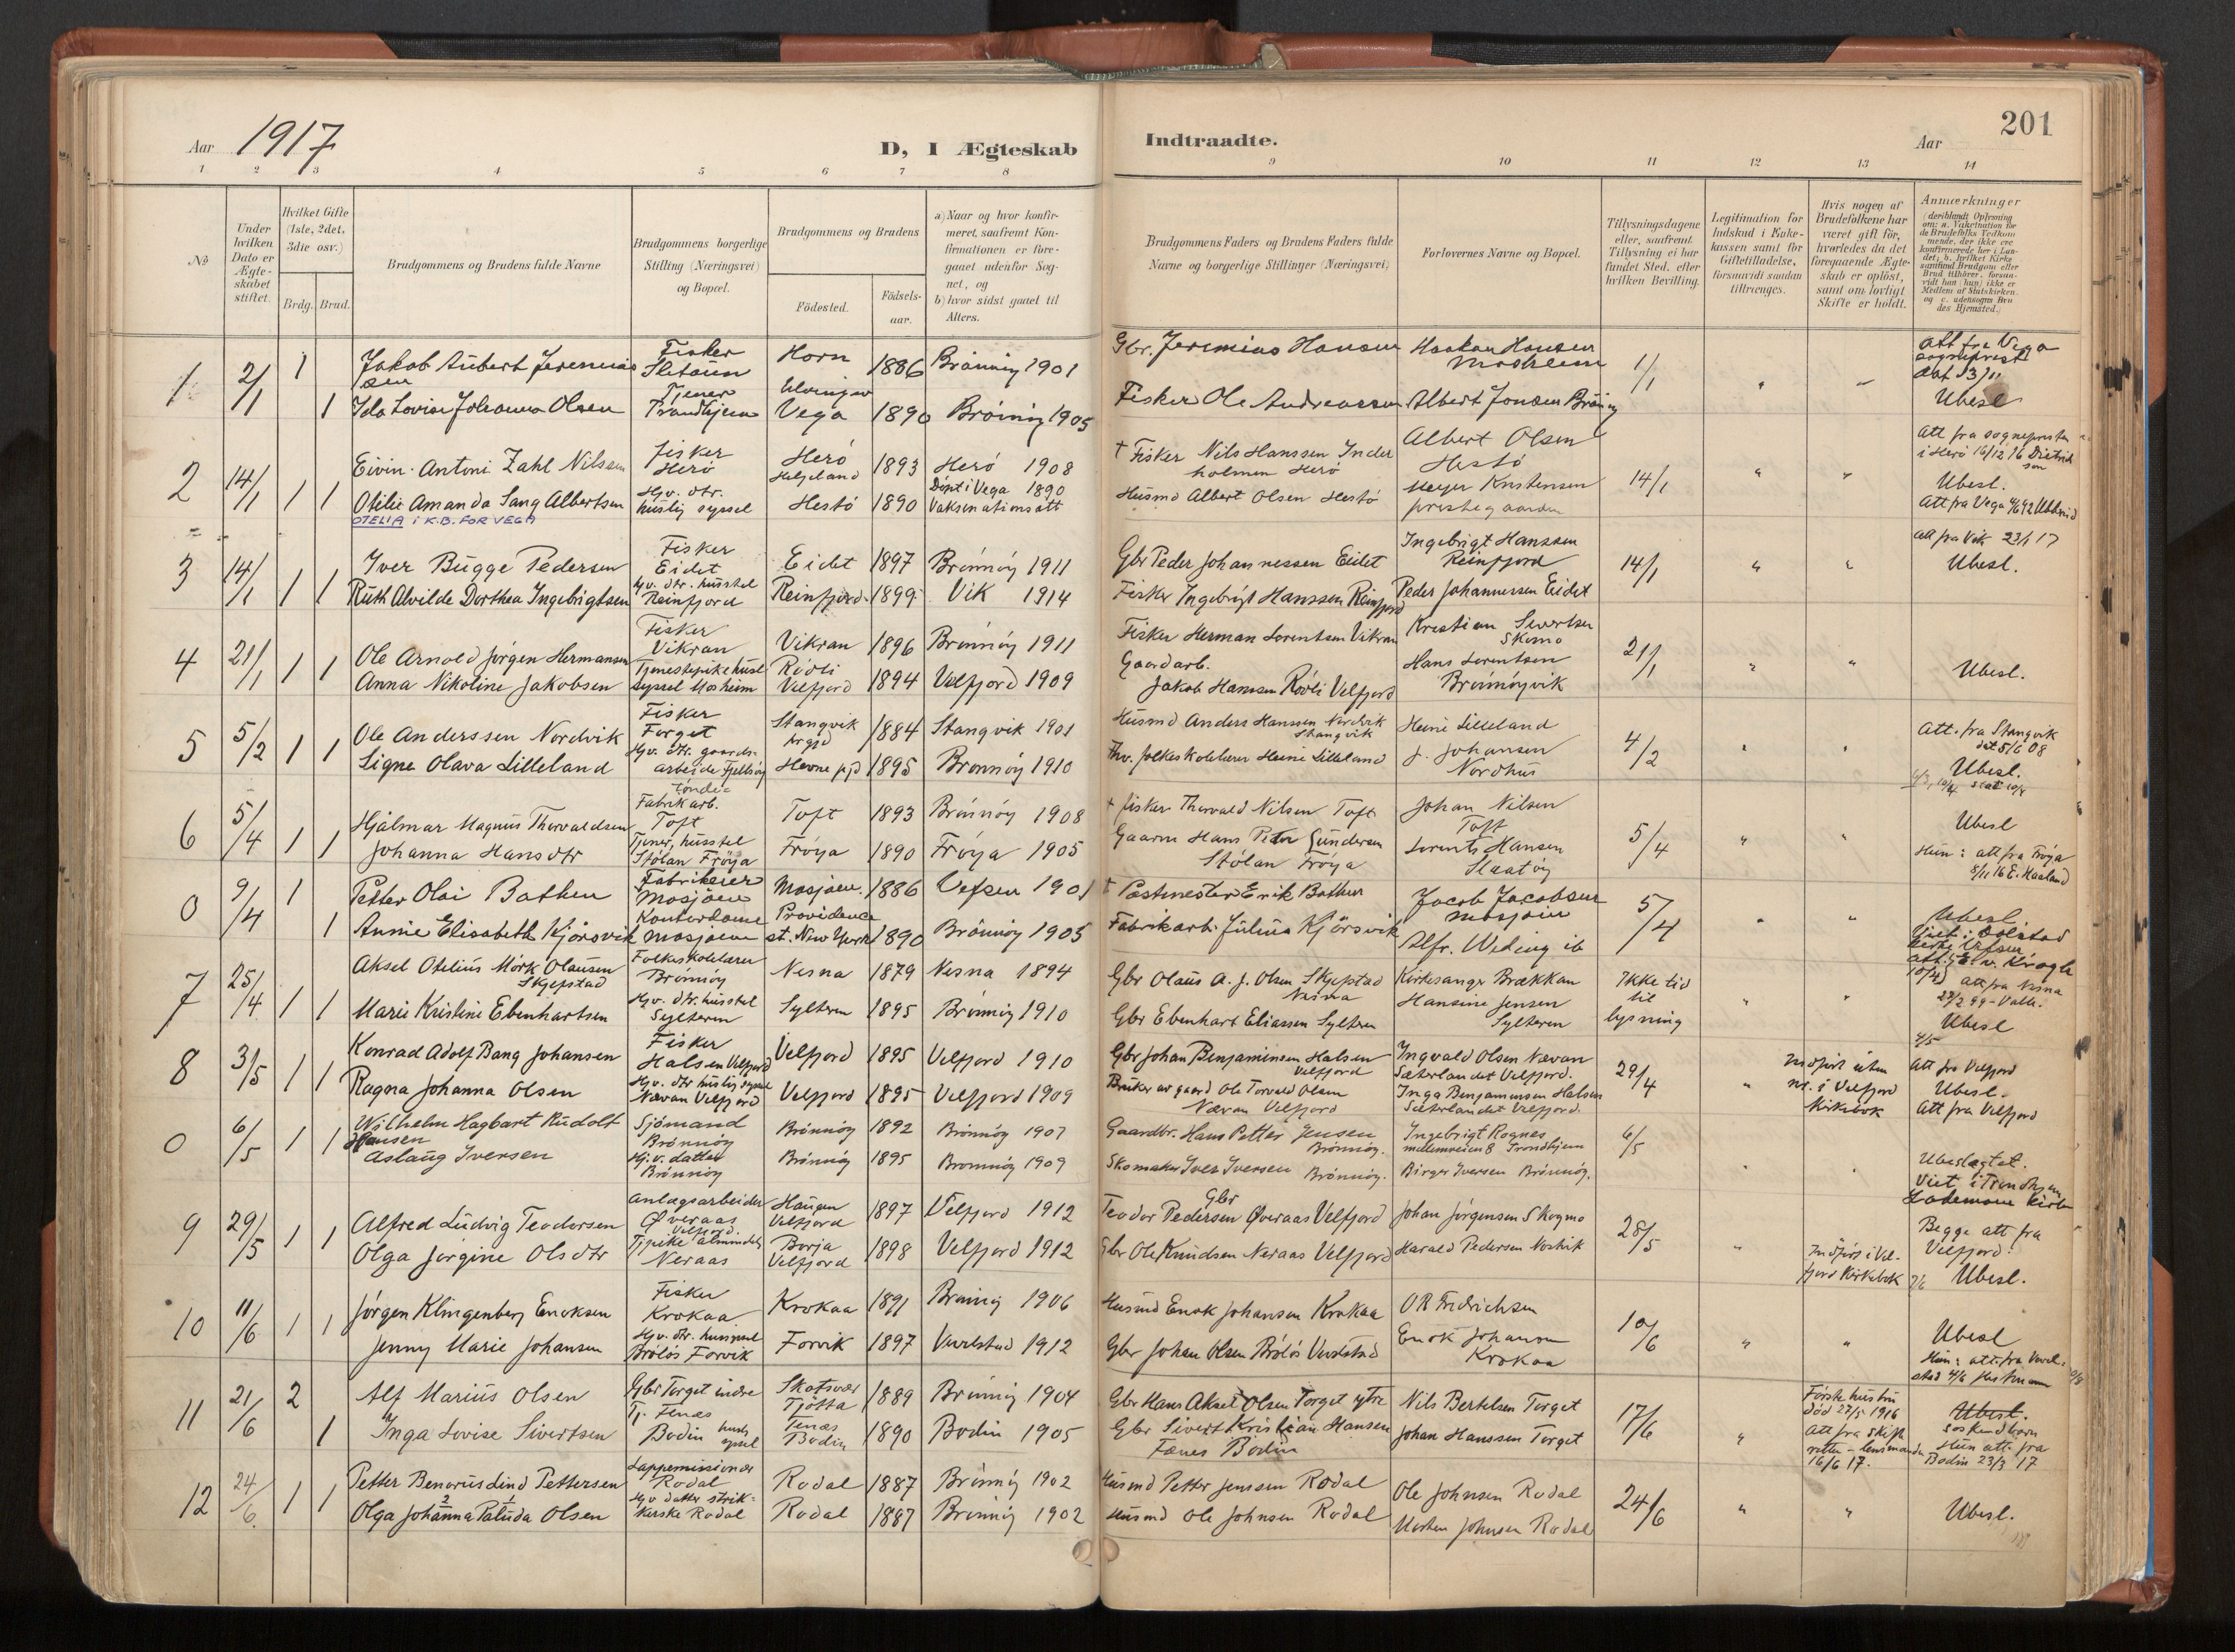 Aar 1917
D, I Ægteskab
Indtraadte.
Aar
201
1 2 3 4 5 6 7 8 9 10 11 12 13 14
No
Under hvilken Dato er Ægteskabet stiftet.
Hvilket Gifte (1ste, 2det, 3die osv.)
Brdg. Brud.
Brudgommens og Brudens fulde Navne
Brudgommens borgerlige Stilling (Næringsvei) og Bopæl.
Brudgommens og Brudens
Födested.
Födsels-aar.
a) Naar og hvor konfirmeret, saafremt Konfirmationen er foregaaet udenfor Sognet, og
b) hvor sidst gaaet til Alters.
Brudgommens Faders og Brudens Faders fulde Navne og borgerlige Stillinger (Næringsvei)
Forlovernes Navne og Bopæl.
Tillysningsdagene eller, saafremt Tillysning ei har fundet Sted, efter hvilken Bevilling.
Legitimation for Indskud i Enkekassen samt for Giftetilladelse, forsaavidt saadan tiltrænges.
Hvis nogen af Brudefolkene har været gift før, hvorledes da det foregaaende Ægteskab er opløst, samt om lovligt Skifte er holdt.
Anmærkninger
1 2/1 1 Jakob Aubert Jeremias sen Fisker Horn 1886 Brönnöy 1901 Gbr. Jeremias Hansen Haakon Hansen Mosheim 1/1 Att fra Vega
1 Ida Lovise Johanna Olsen Tjener Trondhjem Vega 1890 Brönnöy 1905 Fisker Ole Andreassen Albert Jonsen Brönnöy Ubesl
2 14/1 1 Eivin Antoni Zahl Nilssen Fisker Herö Herö Helgeland 1893 Herö 1908 † Fisker Nils Hanssen Inderholmen Herö Albert Olsen Hestö 14/1 Att fra sognepresten i Herö 16/12 16
1 Otilie Amanda Sang Albertsen Hjv. dtr. huslig syssel Hestö 1890 Döpt i Vega 1890 Vaksinationsatt Husmd Albert Olsen Hestö Meyer Kristensen prestegaarden Ubesl. Att fra Vega
OTELIA i K.B. FOR VEGA
3 14/1 1 Iver Bugge Pedersen Fisker Eidet Eidet 1897 Brönnöy 1911 Gbr Peder Johannessen Eidet Ingebrigt Hanssen Reinfjord 14/1 att fra Vik 23/1 17
1 Ruth Alvilde Dorthea Ingebrigtsen Hjv. dtr. husstel Reinfjord Reinfjord 1899 Vik 1914 Fisker Ingebrigt Hanssen Reinfjord Peder Johannessen Eidet Ubesl.
4 21/1 1 Ole Arnold Jörgen Hermansen Fisker Vikran Vikran 1896 Brönnöy 1911 Fisker Herman Lorentsen Vikran Kristian Sivertsen Skomo 21/1
1 Anna Nikoline Jakobsen Tjenestepike husl syssel Mosheim Rödli Velfjord 1894 Velfjord 1909 Gaardarb. Jakob Hansen Rödli Velfjord Hans Lorentsen Brönnöyvik Ubesl.
5 5/2 1 Ole Anderssen Nordvik Fisker Torget Stangvik 1884 Stangvik 1901 Husmd Anders Hanssen Nordvik Stangvik Heine Lilleland 4/2 Att. fra Stangvik dat 5/6 08
1 Signe Olava Lilleland Hjv. dtr. gaardsarbeide Hevne 1895 Brönnöy 1910 Thv. folkeskolelærer Heine Lilleland J. Johansen Nordhus Ubesl.
6 5/4 1 Hjalmar Magnus Thorvaldsen Töndefabrikarb. Toft Toft 1893 Brönnöy 1908 † Fisker Thorvald Nilsen Toft Johan Nilsen Toft 5/4 Ubesl
1 Johanna Hansdtr Tjener, husstel Stölan Fröya Fröya 1890 Fröya 1905 Gaarm Hans Peter Gundersen Stölan Fröya Lorents Hansen Slaatöy Hun: att fra Fröya 8/11 16 E. Haaland
0 9/4 1 Petter Olai Bathen Fabrikeier Mosjöen Mosjöen 1886 Vefsen 1901 † Postmester Erik Bathen Jacob Jacobsen Mosjöen 5/4
1 Annie Elisabeth Kjörsvik Kontordame Mosjöen Providence st. New York 1890 Brönnöy 1905 Fabrikarb. Julius Kjörsvik Alfr. Weding ib Ubesl. Viet i Dolstad kirke Vefsen
7 25/4 1 Aksel Otelius Mörk Olausen Skjefstad Folkeskolelærer Brönnöy Nesna 1879 Nesna 1894 Gbr Olaus A. J. Olsen Skjefstad Nesna Kirkesanger Brækkan Ikke tid til lysning att fra Nesna
1 Marie Kristine Ebenhartsen Hjv. dtr. husstel Sylteren Sylteren 1895 Brönnöy 1910 Gbr Ebenhart Eliassen Sylteren Hansine Jensen Sylteren Ubesl
8 3/5 1 Konrad Adolf Bang Johansen Fisker Halsen Velfjord Velfjord 1895 Velfjord 1910 Gbr Johan Benjaminsen Halsen Velfjord Ingvald Olsen Nævan Sæterlandet Velfjord. 29/4 Indfört uten nr. i Velfjord kirkebok Att fra Velfjord
1 Ragna Johanna Olsen Hjv. dtr huslig syssel Nævan Velfjord Velfjord 1895 Velfjord 1909 Bruker av gaard Ole Torvald Olsen Nævan Velfjord Inga Benjaminsen Halsen Sæterlandet Velfjord. Ubesl. Att fra Velfjord
0 6/5 1 Wilhelm Hagbart Rudolf Hansen Sjömand Brönnöy Brönnöy 1892 Brönnöy 1907 Gaardbr. Hans Petter Jensen Brönnöy. Ingebrigt Rognes mellemveien 8 Trondhjem 6/5
1 Aslaug Iversen Hj.v. datter Brönnöy Brönnöy 1895 Bronnöy 1909 Skomaker Iver Iversen Brönnöy. Birger Iversen Brönnöy. Ubeslægtet. Viet i Trondhjem Lademoen kirke
9 29/5 1 Alfred Ludvig Teodorsen Anlægsarbeider Øveraas Velfjord Haugen Velfjord 1897 Velfjord 1912 Gbr Teodor Pedersen Øveraas Velfjord Johan Jörgensen Skogmo 28/5 Begge att fra Velfjord.
1 Olga Jörgine Olsdtr Neraas Borja Velfjord 1898 Velfjord 1912 Gbr Ole Knudsen Neraas Velfjord Harald Pedersen Indfört i Velfjord kirkebok Ubesl.
10 11/6 1 Jörgen Klingenberg Enoksen Fisker Krokaa Krokaa 1891 Brönnöy 1906 Husmd Enok Johansen Krokaa O R Fridrichsen 10/6 Ubesl
1 Jenny Marie Johansen Hjv. dtr. Brölös Forvik Forvik 1897 Vevelstad 1912 Gbr Johan Olsen Brölös Vevelstad Enok Johansen Krokaa Hun: att. fra Vevelstad
11 21/6 2 Alf Marius Olsen Gbr Torget indre Skotsvær Tjötta 1889 Brönnöy 1904 Gbr Hans Aksel Olsen Torget ytre Nils Bertelsen Torget 17/6 Förste hustru död 27/5 1916 Ubesl.
1 Inga Lovise Sivertsen Tj. Fenæs Bodin husl. syssel Fenæs Bodin 1890 Bodin 1905 Gbr Sivert Kristian Hansen Fænes Bodin Johan Hanssen Torget Att fra skifteretten 16/6 17. söskendbarn Hun att. fra Bodin 23/3 17
12 24/6 1 Petter Benorius Lind Pettersen Lappemissionær Rodal Rodal 1887 Brönnöy 1902 Husmd Petter Jenssen Rodal Ole Johnsen Rodal 24/6
1 Olga Johanna Paluda Olsen Hjv datter strikkerske Rodal Rodal 1887 Brönnöy 1902 Husmd Ole Johnsen Rodal Morten Johnsen Rodal Ubesl.